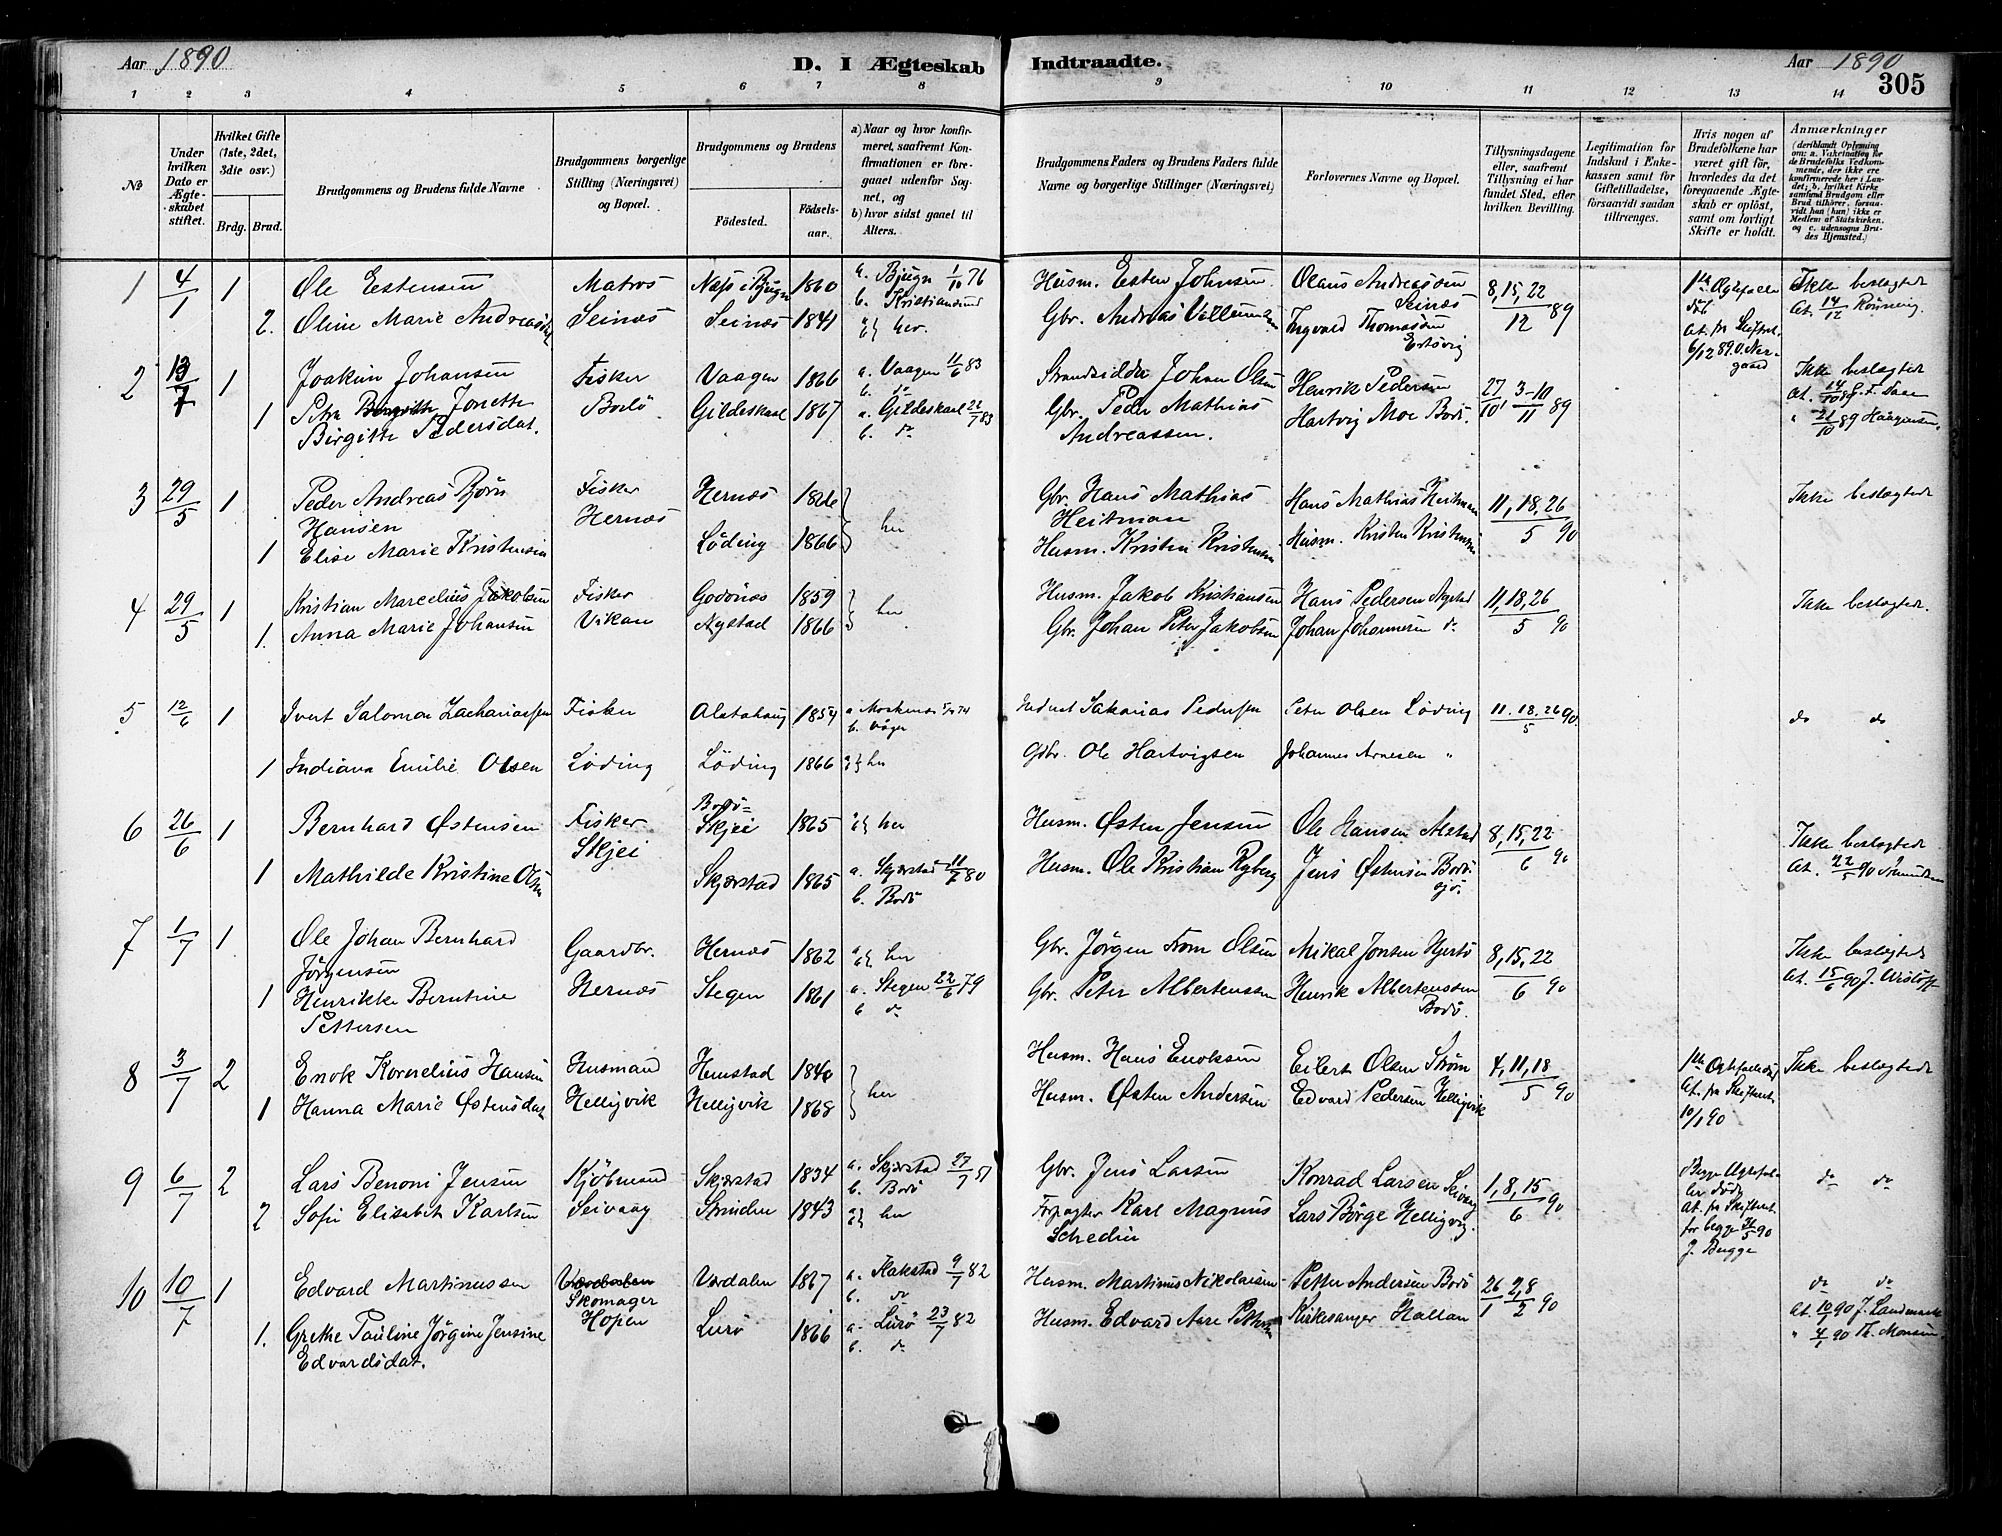 Aar 1890
D. I Ægteskab Indtraadte.
Aar 1890
305
1 2 3 4 5 6 7 8 9 10 11 12 13 14
№
Under hvilken Dato er Ægteskabet stiftet.
Hvilket Gifte (1ste, 2det, 3die osv.)
Brdg. Brud.
Brudgommens og Brudens fulde Navne
Brudgommens borgerlige Stilling (Næringsvei) og Bopæl.
Brudgommens og Brudens
Fødested. Fødselsaar.
a) Naar og hvor konfirmeret, saafremt Konfirmationen er foregaaet udenfor Sognet, og
b) hvor sidst gaaet til Alters.
Brudgommens Faders og Brudens Faders fulde Navne og borgerlige Stillinger (Næringsvei)
Forlovernes Navne og Bopæl.
Tillysningsdagene eller, saafremt Tillysning ei har fundet Sted, efter hvilken Bevilling.
Legitimation for Indskud i Enkekassen samt for Giftetilladelse, forsaavidt saadan tiltrænges.
Hvis nogen af Brudefolkene har været gift før, hvorledes da det foregaaende Ægteskab er opløst, samt om lovligt Skifte er holdt.
Anmærkninger (deriblandt Oplysning om: a. Vakcination for de Brudefolks Vedkommende, der ikke ere konfirmerede her i Landet; b. hvilket Kirkesamfund Brudgom eller Brud tilhører, forsaavidt han (hun) ikke er Medlem af Statskirken, og c. udensogns Brudes Hjemsted.)
1 4/1 1 Ole Estensen Matros Næs i Bjugn 1860 a. Bjugn 1/10 76 Husm. Esten Johnsen Olaus Andreassen Seinæs 8, 15, 22/12 89 1ste Ægtefælle död Ikke beslægtede
b. Kristiansund
2. Oline Marie Andreasdat Seinæs Seinæs 1841 a} b} her. Gbr. Andreas Ingvard Thomassen At. fra Skifteret. 6/12 89 At. 14/12 Rönneig
2 13/7 1 Joakim Johansen Fisker Vaagen 1866 a. Vaagen 11/6 83 Strandsidder Johan Olsen Henrik Pedersen 27/10, 3-10/11 89 Ikke beslægtede
b. do
1 Petra Jonette Bodö Gildeskaal 1867 a. Gildeskaal 22/7 83 Gbr. Peder Mathias Hartvig Moe Bodö.
Birgitte Pedersdat. b. do Andreassen. " 21/10 89 Haagensen
3 29/5 1 Peder Andreas Bjørn Fisker Hernæs 1826 } her Gbr. Hans Mathias Hans Mathias Heitman 11, 18, 26/5 90 Ikke beslægtede
Hansen Hernæs Heitman
1 Elise Marie Kristensen Löding 1866 Husm. Kristen Kristensen Husm. Kristen Kristensen
4 29/5 1 Kristian Marcelius Jakobsen Fisker Godönes 1859 } her Husm. Jakob Kristiansen Hans Pedersen 11, 18, 26/5 90 Ikke beslægtede.
1. Anna Marie Johansen Vikan 1866 Gbr. Johan Peter Jakobsen Johan Johannesen do
5 12/6 1 Ivert Salomon Zachariassen Fisker Alstahaug 1854 a Moskenæs b. Våger Sakarias Pedersen Peter Olsen Löding 11. 18. 26/5 90 do do
1 Indiana Emilie Olsen Löding Löding 1866 a} b} her Gdbr. Ole Hartvigsen Johannes Arnesen "
6 26/6 1 Bernhard Østensen Fisker Bodö- Skjei 1865 a} b} her Husm. Østen Jensen Ole Hansen Alstad 8, 15, 22/6 90 Ikke beslægtede
Skjei
1 Mathilde Kristine Olsen Skjerstad 1865 a. Skjerstad 11/7 80 Husm. Ole Kristian Ryberg Jens Østensen Bodösjö. At. 22/5 90
b. Bodö
7 1/7 1 Ole Johan Bernhard Gaardbr. Hernæs 1862 a} b} her Gbr. Jörgen From Olsen Mikal Jonsen Hjertö 8, 15, 22/6 90 Ikke beslægtede
Jörgensen
1 Henrikke Berntine Hernæs Stegen 1861 a. Stegen 22/6 79 Gbr. Peter Albertenssen Henrik Albertenssen Bodö. At. 15/6 90
Pettersen b do
8 3/7 2 Enok Kornelius Hansen Husmand Hemstad 1846 } her Husm. Hans Enoksen Eilert Olsen Strøm 4, 11, 18/5 90 1ste Ægtefælle död Ikke beslægtede
1 Hanna Marie Østensdat Helligvik Helligvik 1868 Husm. Østen Andersen Edvard Pedersen Helligvik At. fra Skifteret. 10/1 90
9 6/7 2 Lars Benoni Jensen Kjöbmand Skjerstad 1834 a. Skjerstad 27/7 51 Gbr. Jens Larsen Konrad Larsen Seivaag 1, 8, 15/6 90 Begge Ægtefæller döde do do
b. Bodö
2 Sofie Elisabet Karlsen Seivaag Strinden 1843 a} b} her Forpagter Karl Magnus Lars Börge Helligvig. At. fra Skifteret. for begge 31/5 90
Schedin J. Bugge
10 10/7 1 Edvard Martinussen Værdalen Verdalen 1867 a. Stakstad 9/7 82 Husm. Martinus Nikolaisen Petter Andersen Bodö 26/1 2,8/2 90 do do
Skomager b. do At. 10/7 90 J. Landmark
1. Grethe Pauline Jörgine Jensine Hopen Lurö 1866 a. Lurö 23/7 82 Husm. Edvard Aare Kirkesanger Hallan " 4/7 90 Th. Monsen
Edvardsdat. b. do